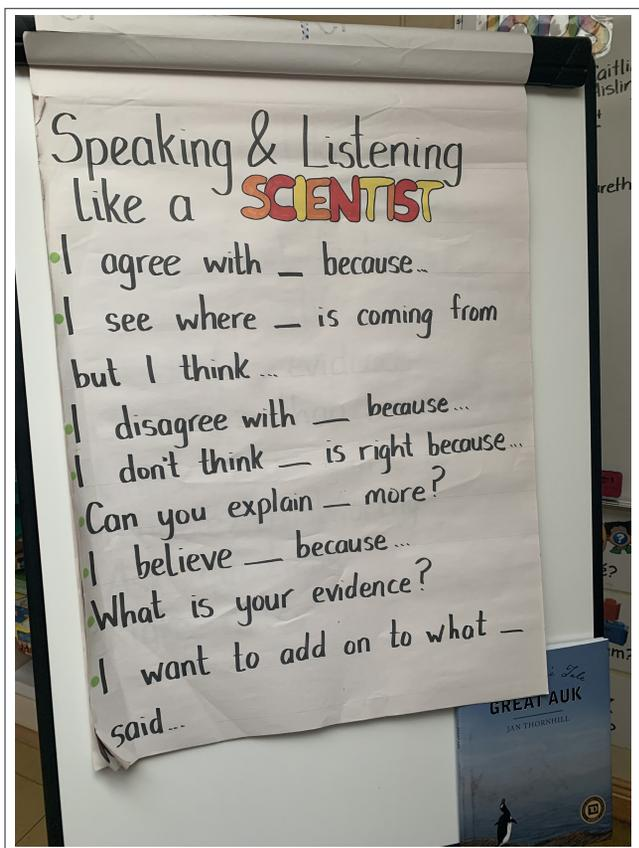 Speaking & Listening
like a SCIENTIST
I agree with _ because...
I see where _ is coming from
but I think...
I disagree with _ because...
I don't think _ is right because...
Can you explain _ more?
I believe _ because...
What is your evidence?
I want to add on to what _
said...
Tale
GREAT AUK
JAN THORNHILL